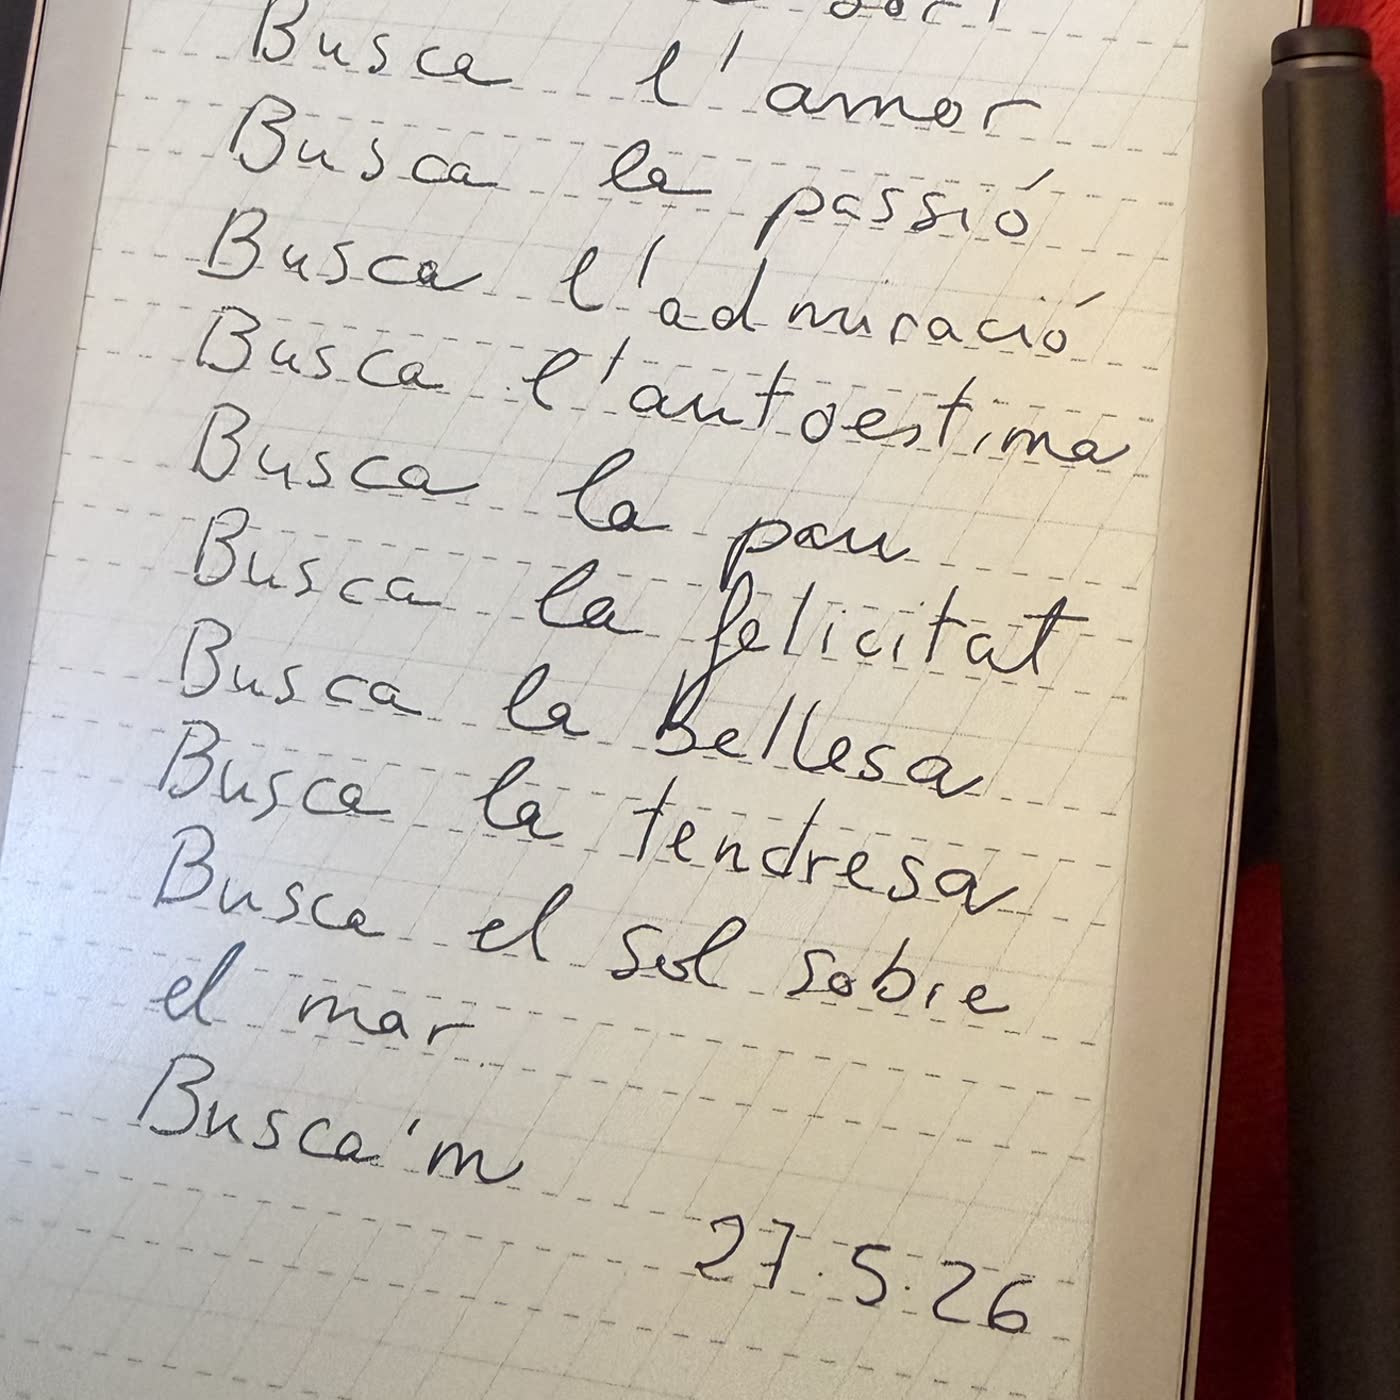 Busca l'amor
Busca la passió
Busca l'admiració
Busca l'autoestima
Busca la pau
Busca la felicitat
Busca la bellesa
Busca la tendresa
Busca el sol sobre
el mar
Busca'm
27.5.26